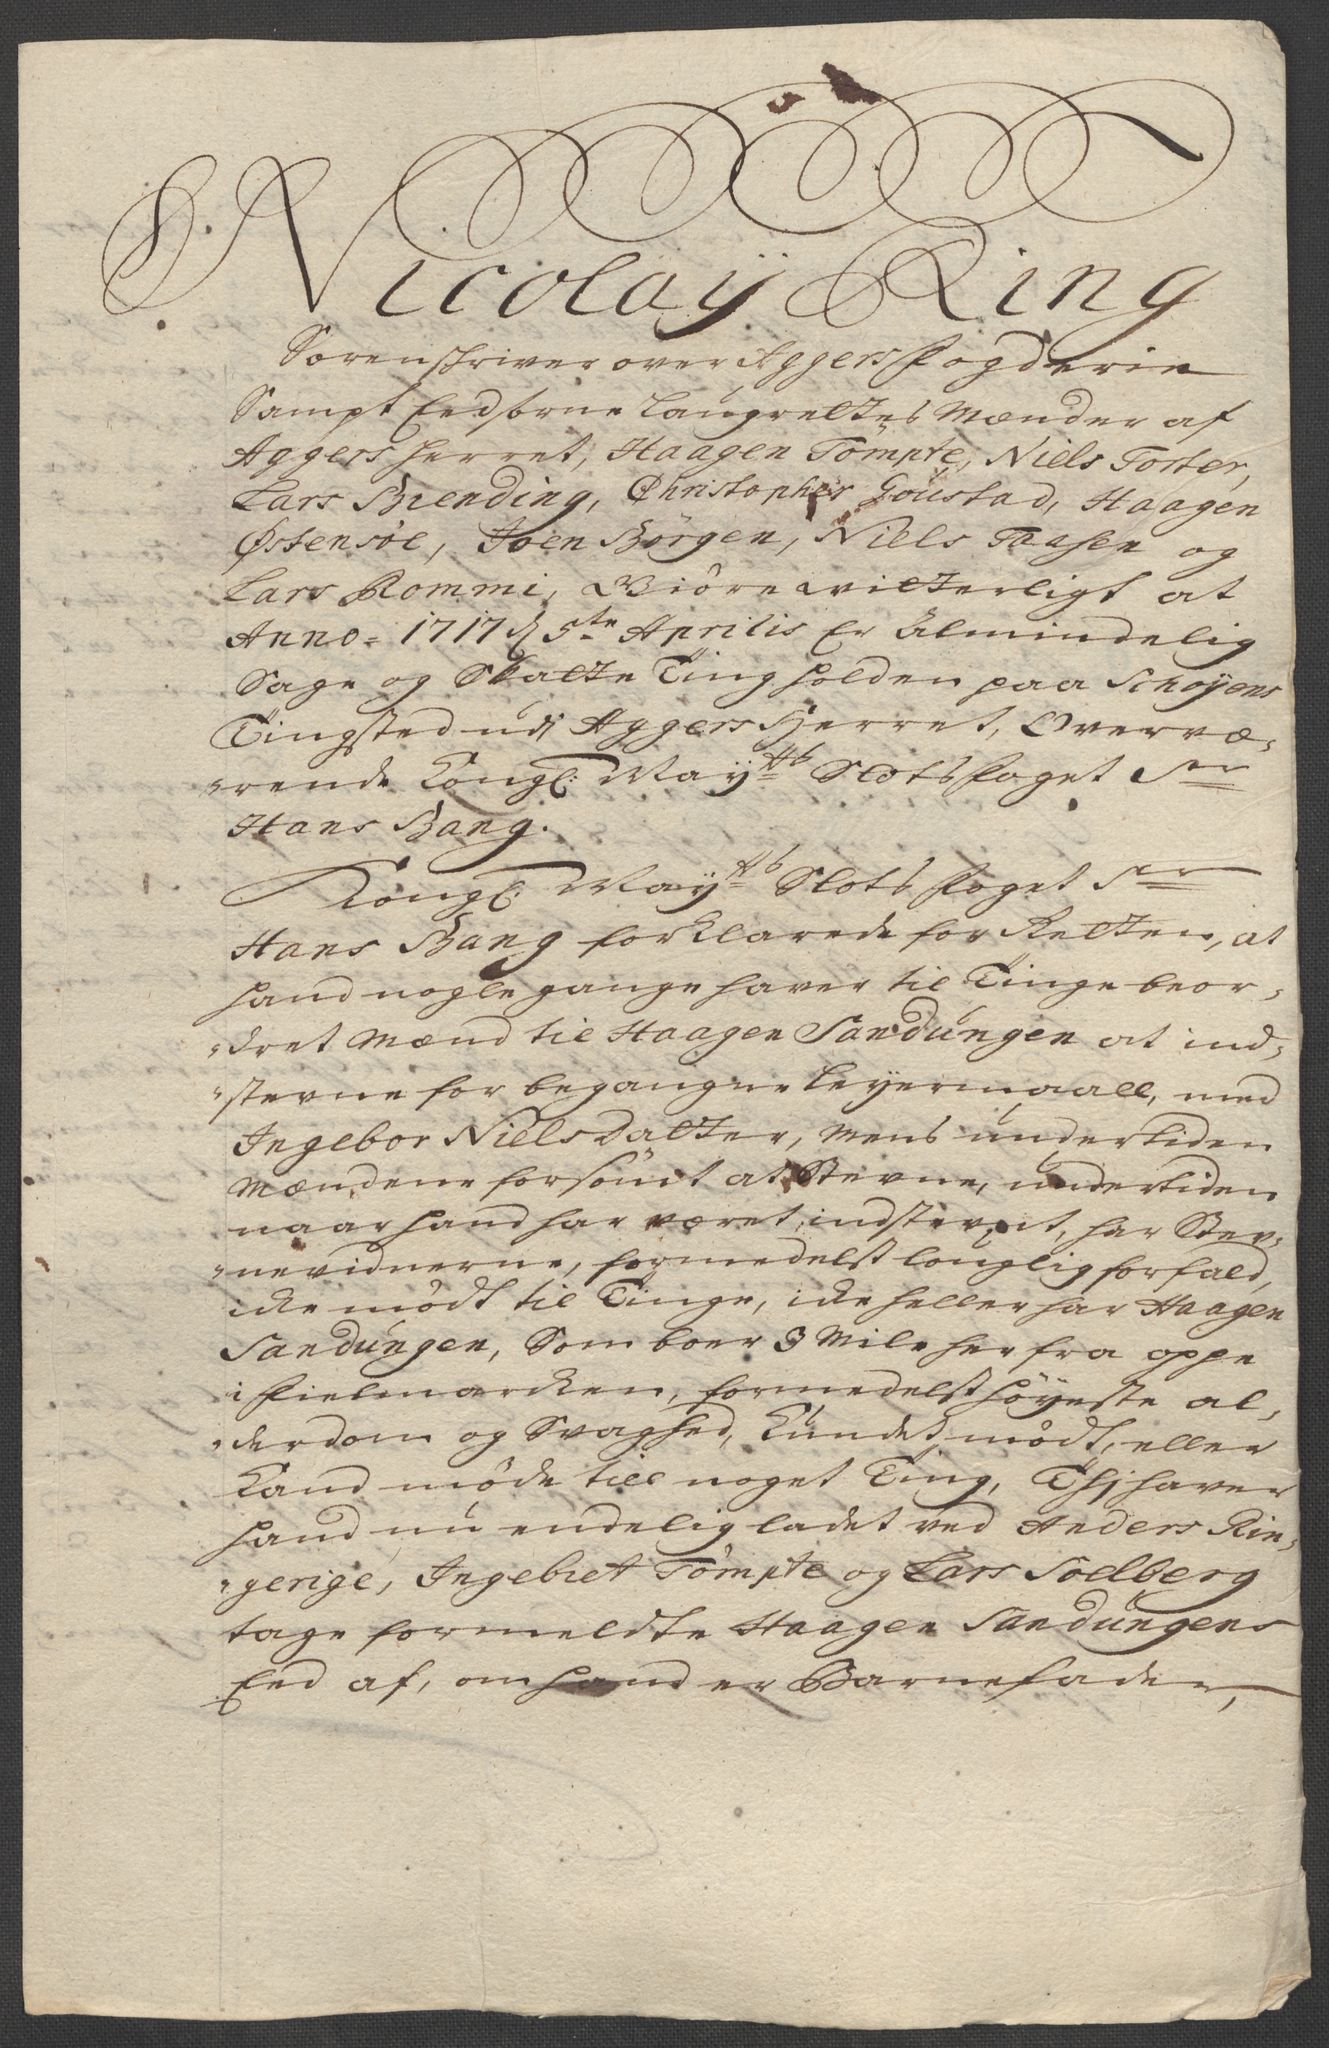 Nicolaÿ Ring
Sorenskriver over Aggers Fogderie
Sampt Eedsorne Laugrettes Mænder af
Aggers herret, Haagen Tômpte, Niels Torter,
Lars Brending, Christopher Goustad, Haagen
Østensøe, Joen Børgen, Niels Taasen og
Lars Rommi, Giöre witterligt at
Anno= 1717 d 5te Aprilis Er Almindelig
Sage og Skatte Ting holden paa Schøÿens
Tingsted udj Aggers Herret, Overvæ-
-rende Kongl: Maÿtts Slots Foget Sr
Hans Bang.
Kongl: Maÿtts Slots Foget Sr
Hans Bang forklarede for Retten, at
hand nogle gange haver til Tinge beor-
-dret Mænd til Haagen Sandungen at ind-
-stevne for begangne Leyermaall, med
Ingebor Nielsdatter, Mens undertiden
Mændene forsömt at Stevne, undertiden
naar hand har været indstevnt, har Stev-
-nevidnerne, formedelst louglig forfald,
icke mödt til Tinge, icke heller har Haagen
Sandungen, Som boer 3 Mile her fra oppe
i Fielmarcken, formedelst höÿeste al-
-derdom og Svaghed, kundet mödt, eller
kand möde till noget Ting, Thj haver
hand nu endelig ladet ved Anders Rin-
-gerige, Ingebret Tômpte og Lars Soelberg
tage formeldte Haagen Sandungens
Eed af, om hand er Barnefader,